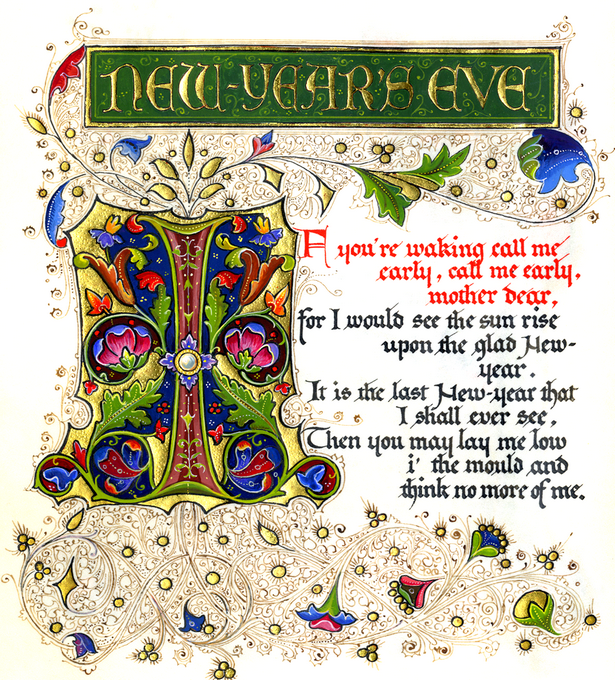 NEW-YEAR'S EVE
IF you're waking call me
early, call me early,
mother dear,
for I would see the sun rise
upon the glad New-
year.
It is the last New-year that
I shall ever see,
Then you may lay me low
i' the mould and
think no more of me.